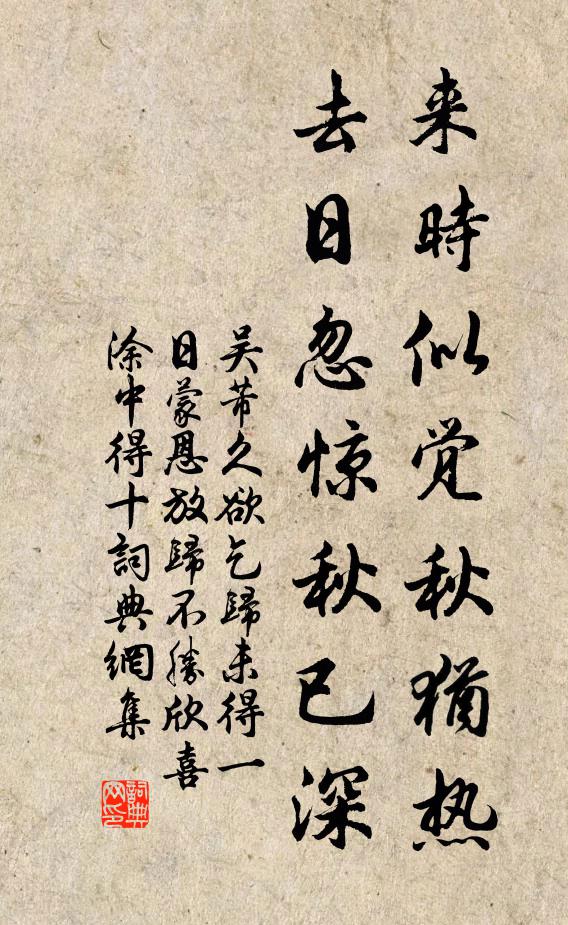 来時似觉秋猶热
去日忽惊秋已深
吴芾久欲乞歸未得一
日蒙恩放歸不勝欣喜
涂中得十詞典網集
詞典
网印